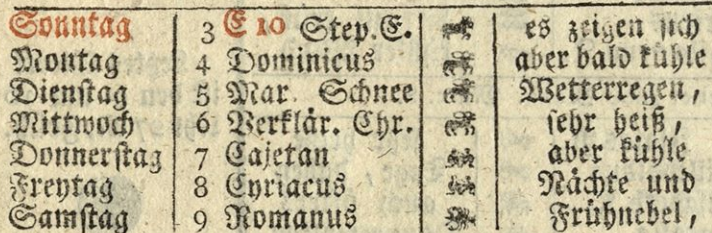 Sonntag 3 E 10 Step. E. es zeigen sich
Montag 4 Dominicus aber bald kühle
Dienstag 5 Mar. Schnee Wetterregen,
Mittwoch 6 Verklär. Chr. sehr heiß,
Donnerstag 7 Cajetan aber kühle
Freytag 8 Cyriacus Nächte und
Samstag 9 Romanus Frühnebel,